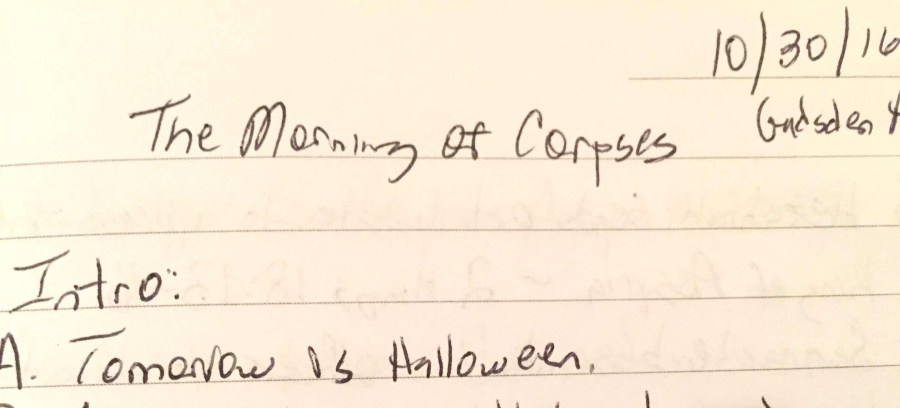 10/30/16
The Morning of Corpses
Gadsden
Intro:
A. Tomorrow is Halloween.